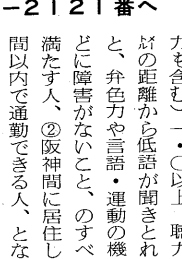 ー2121番へ
力も含む)一・〇以上、聴力
㍍の距離から低語が聞きとれ
と、弁色力や言語・運動の機
どに障害がないこと、のすべ
満たす人、②阪神間に居住し
間以内で通勤できる人、とな